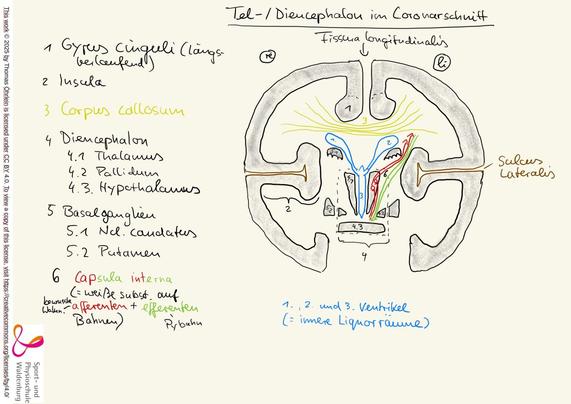 Tel-/Diencephalon im Coronarschnitt
Fissura longitudinalis
re
li
1 Gyrus cinguli (längs-
verlaufend)
2 Insula
3 Corpus callosum
4 Diencephalon
4.1 Thalamus
4.2 Pallidum
4.3. Hypothalamus
5 Basalganglien
5.1 Ncl. caudatus
5.2 Putamen
6 Capsula interna
(= weiße Subst. auf
afferenten + efferenten
Bahnen)
Pybahn
1
3
2
3
4.3
2
4
Sulcus
Lateralis
1., 2. und 3. Ventrikel
(= innere Liquorräume)
This work © 2025 by Thomas Öhrlein is licensed under CC BY 4.0. To view a copy of this license, visit https://creativecommons.org/licenses/by/4.0/
Sport- und
Physioschule
Waldenburg